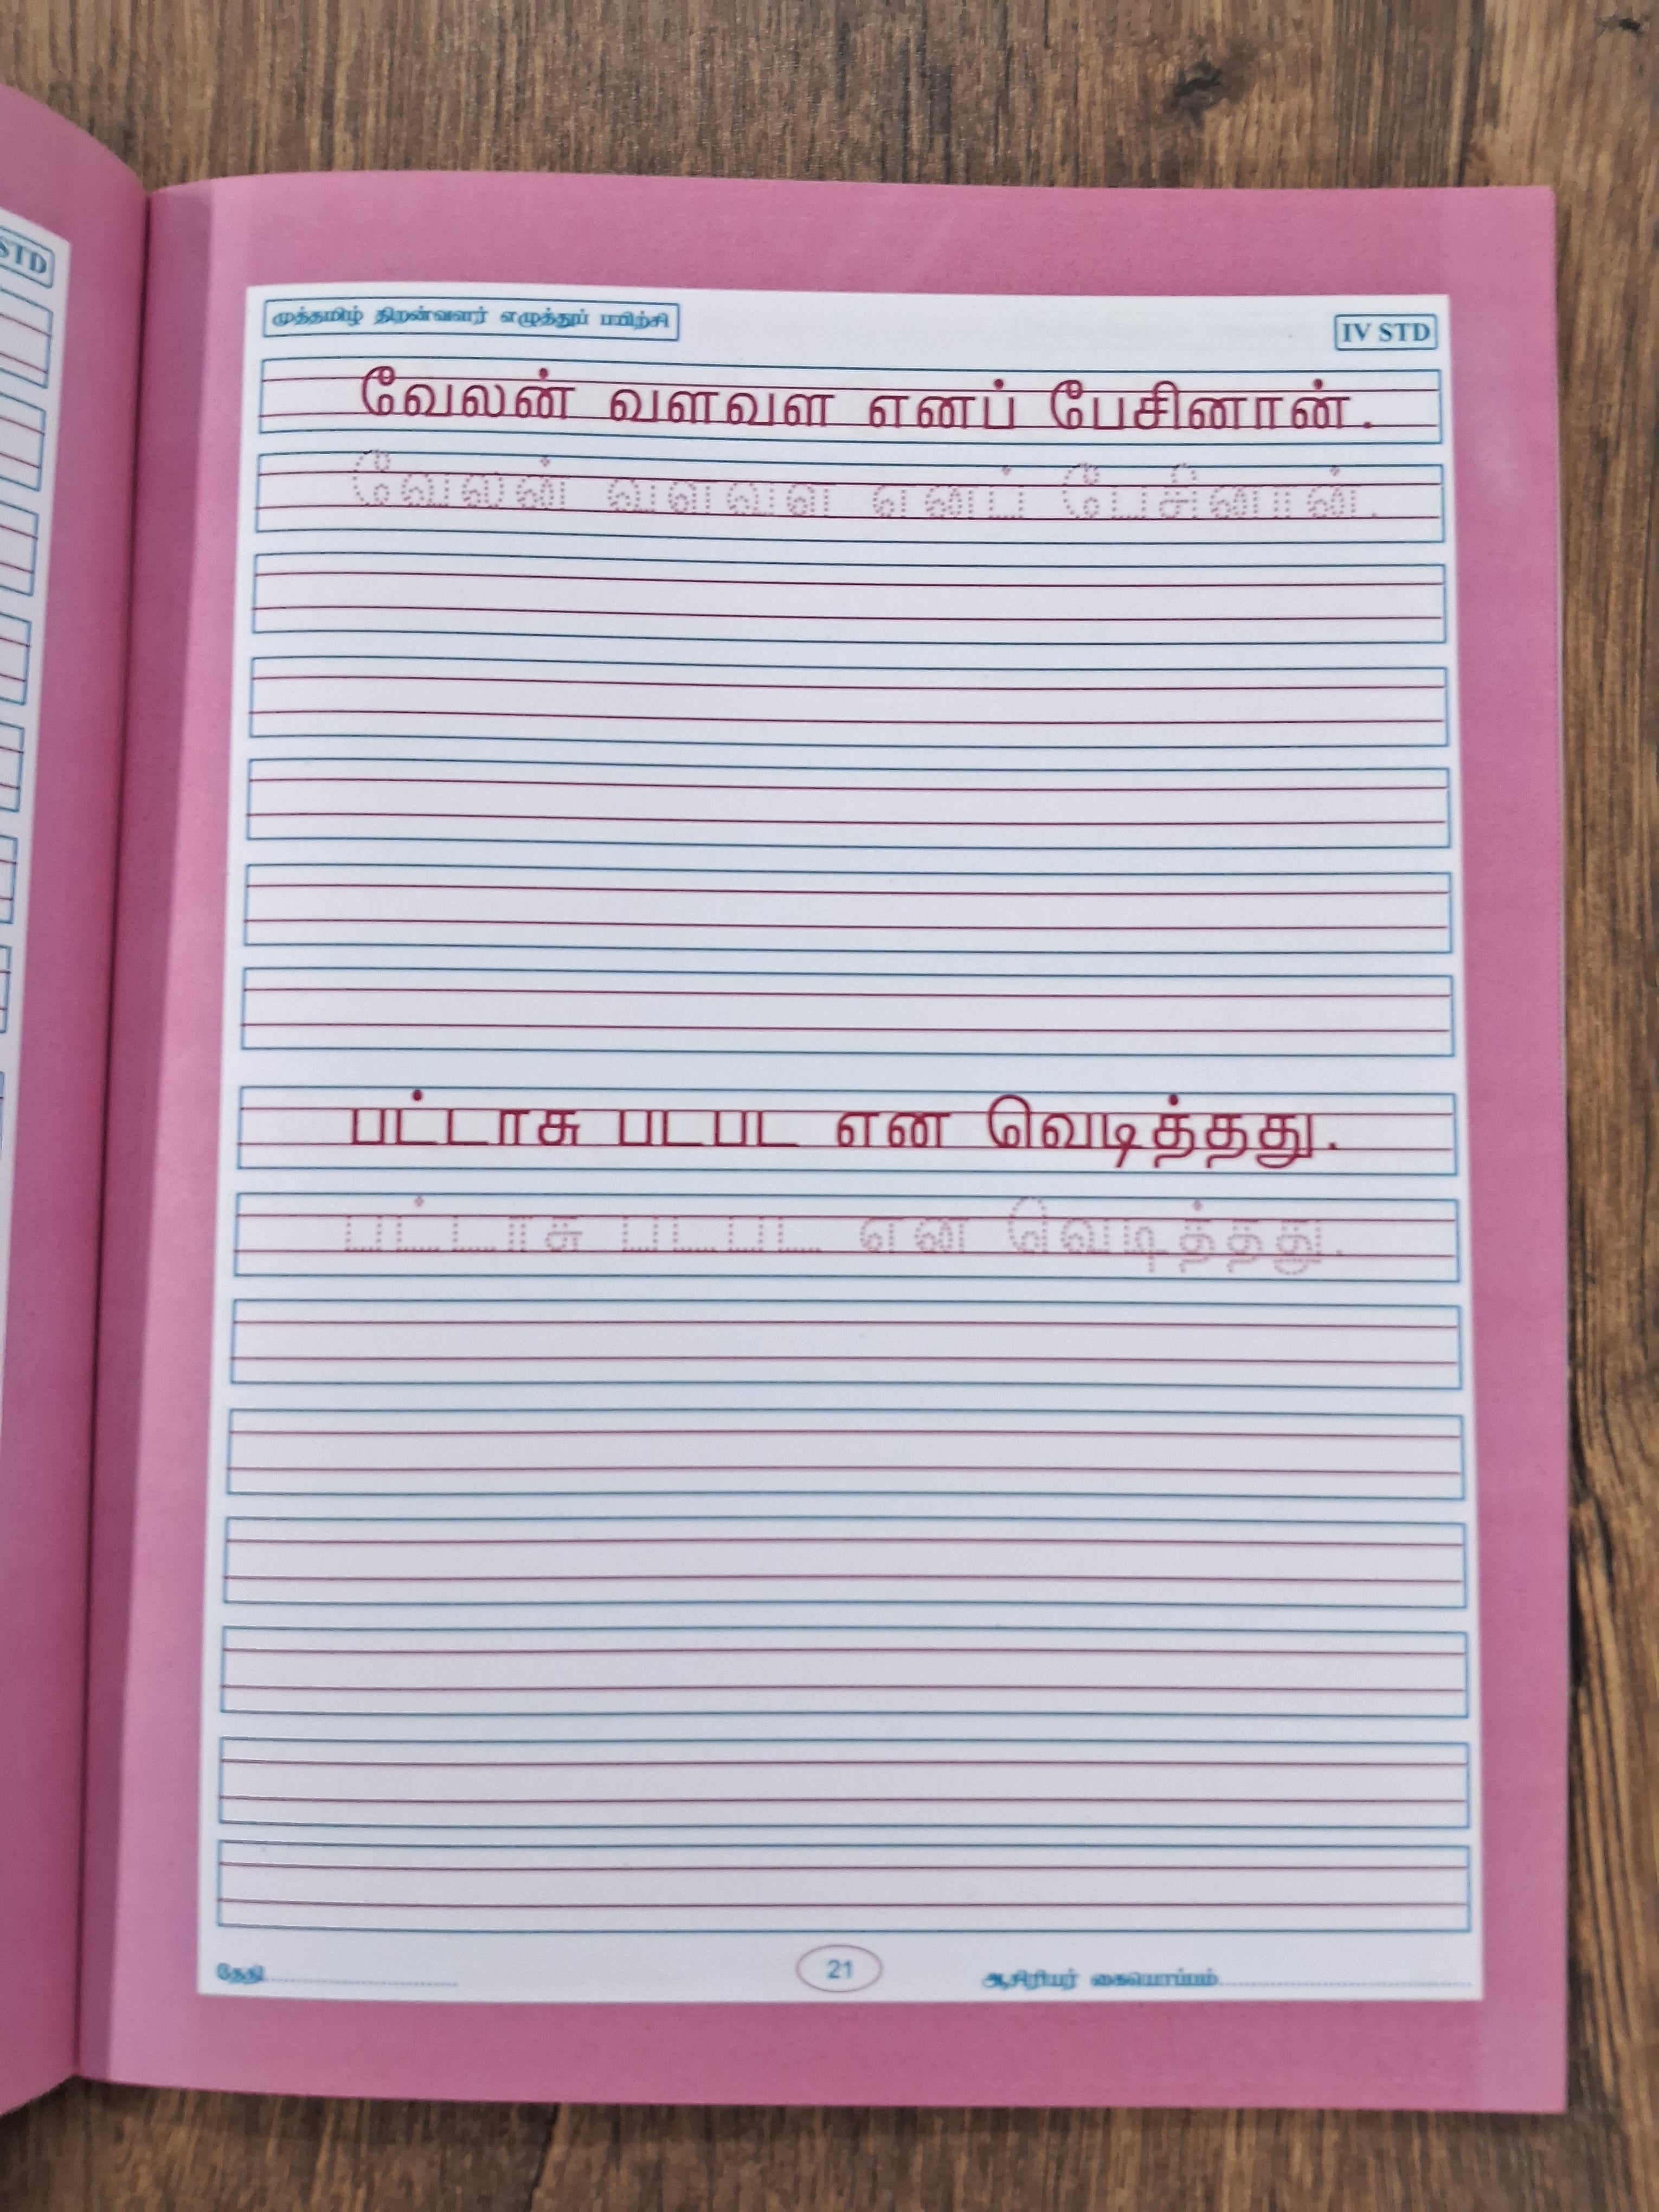 STD
முத்தமிழ் திறன்வளர் எழுத்துப் பயிற்சி
IV STD
வேலன் வளவள எனப் பேசினான்.
வேலன் வளவள எனப் பேசினான்.
பட்டாசு படபட என வெடித்தது.
பட்டாசு படபட என வெடித்தது.
தேதி
21
ஆசிரியர் கையொப்பம்